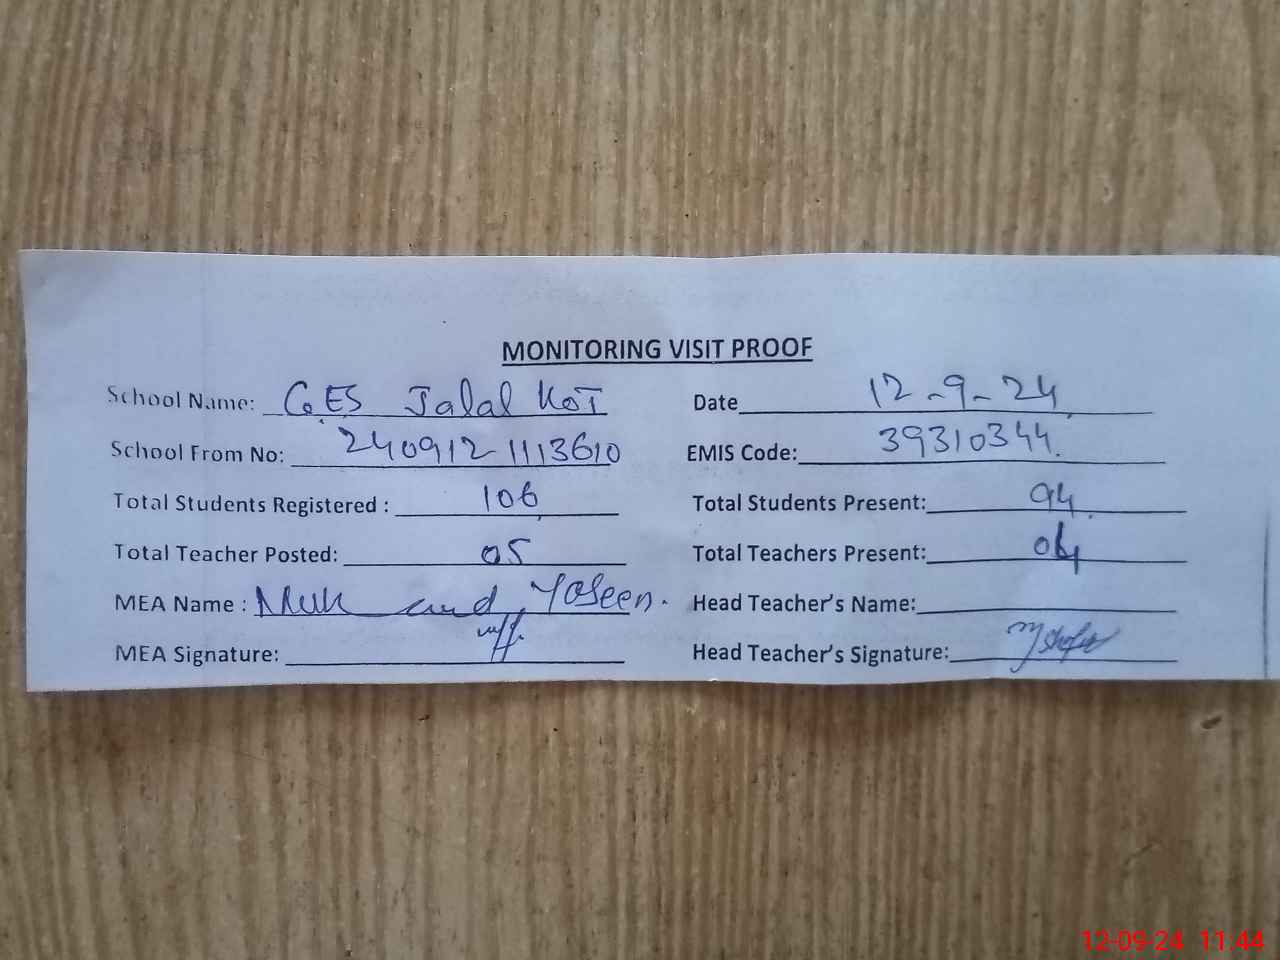 MONITORING VISIT PROOF
School Name: GES Jalal Kot Date 12-9-24
School From No: 240912-1113610 EMIS Code: 39310344
Total Students Registered : 106 Total Students Present: 94
Total Teacher Posted: 05 Total Teachers Present: 04
MEA Name : Yaseen. Head Teacher's Name:
MEA Signature: Head Teacher's Signature:
12-09-24 11:44